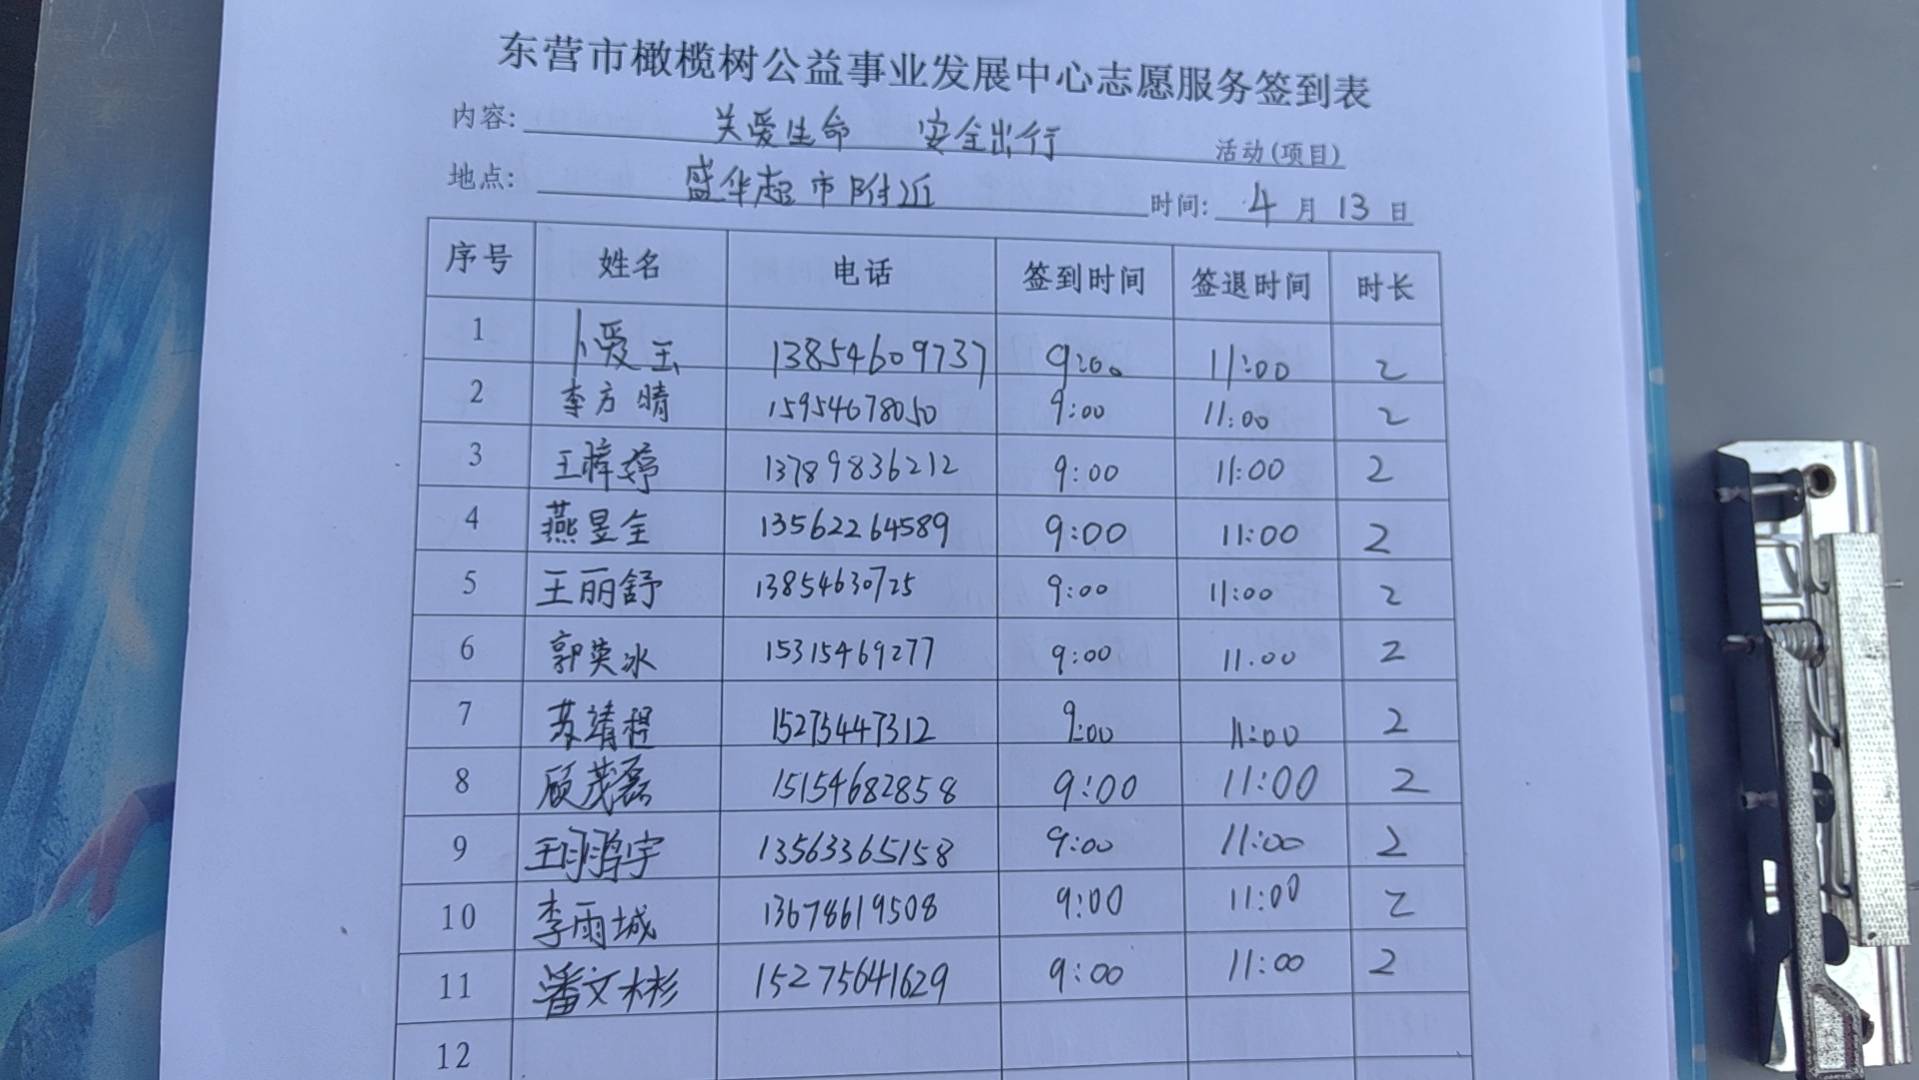 东营市橄榄树公益事业发展中心志愿服务签到表
内容: 关爱生命 安全出行 活动(项目)
地点: 盛华超市附近 时间: 4月13日
序号 姓名 电话 签到时间 签退时间 时长
1 卜爱玉 13854609737 9:00 11:00 2
2 李方晴 15954678050 9:00 11:00 2
3 王樟婷 13789836212 9:00 11:00 2
4 燕昱全 13562264589 9:00 11:00 2
5 王丽舒 13854630725 9:00 11:00 2
6 郭英冰 15315469277 9:00 11:00 2
7 苏靖程 15275447312 9:00 11:00 2
8 顾茂磊 15154682858 9:00 11:00 2
9 王鹏宇 13563365158 9:00 11:00 2
10 李雨城 13678619508 9:00 11:00 2
11 潘文彬 15275641629 9:00 11:00 2
12